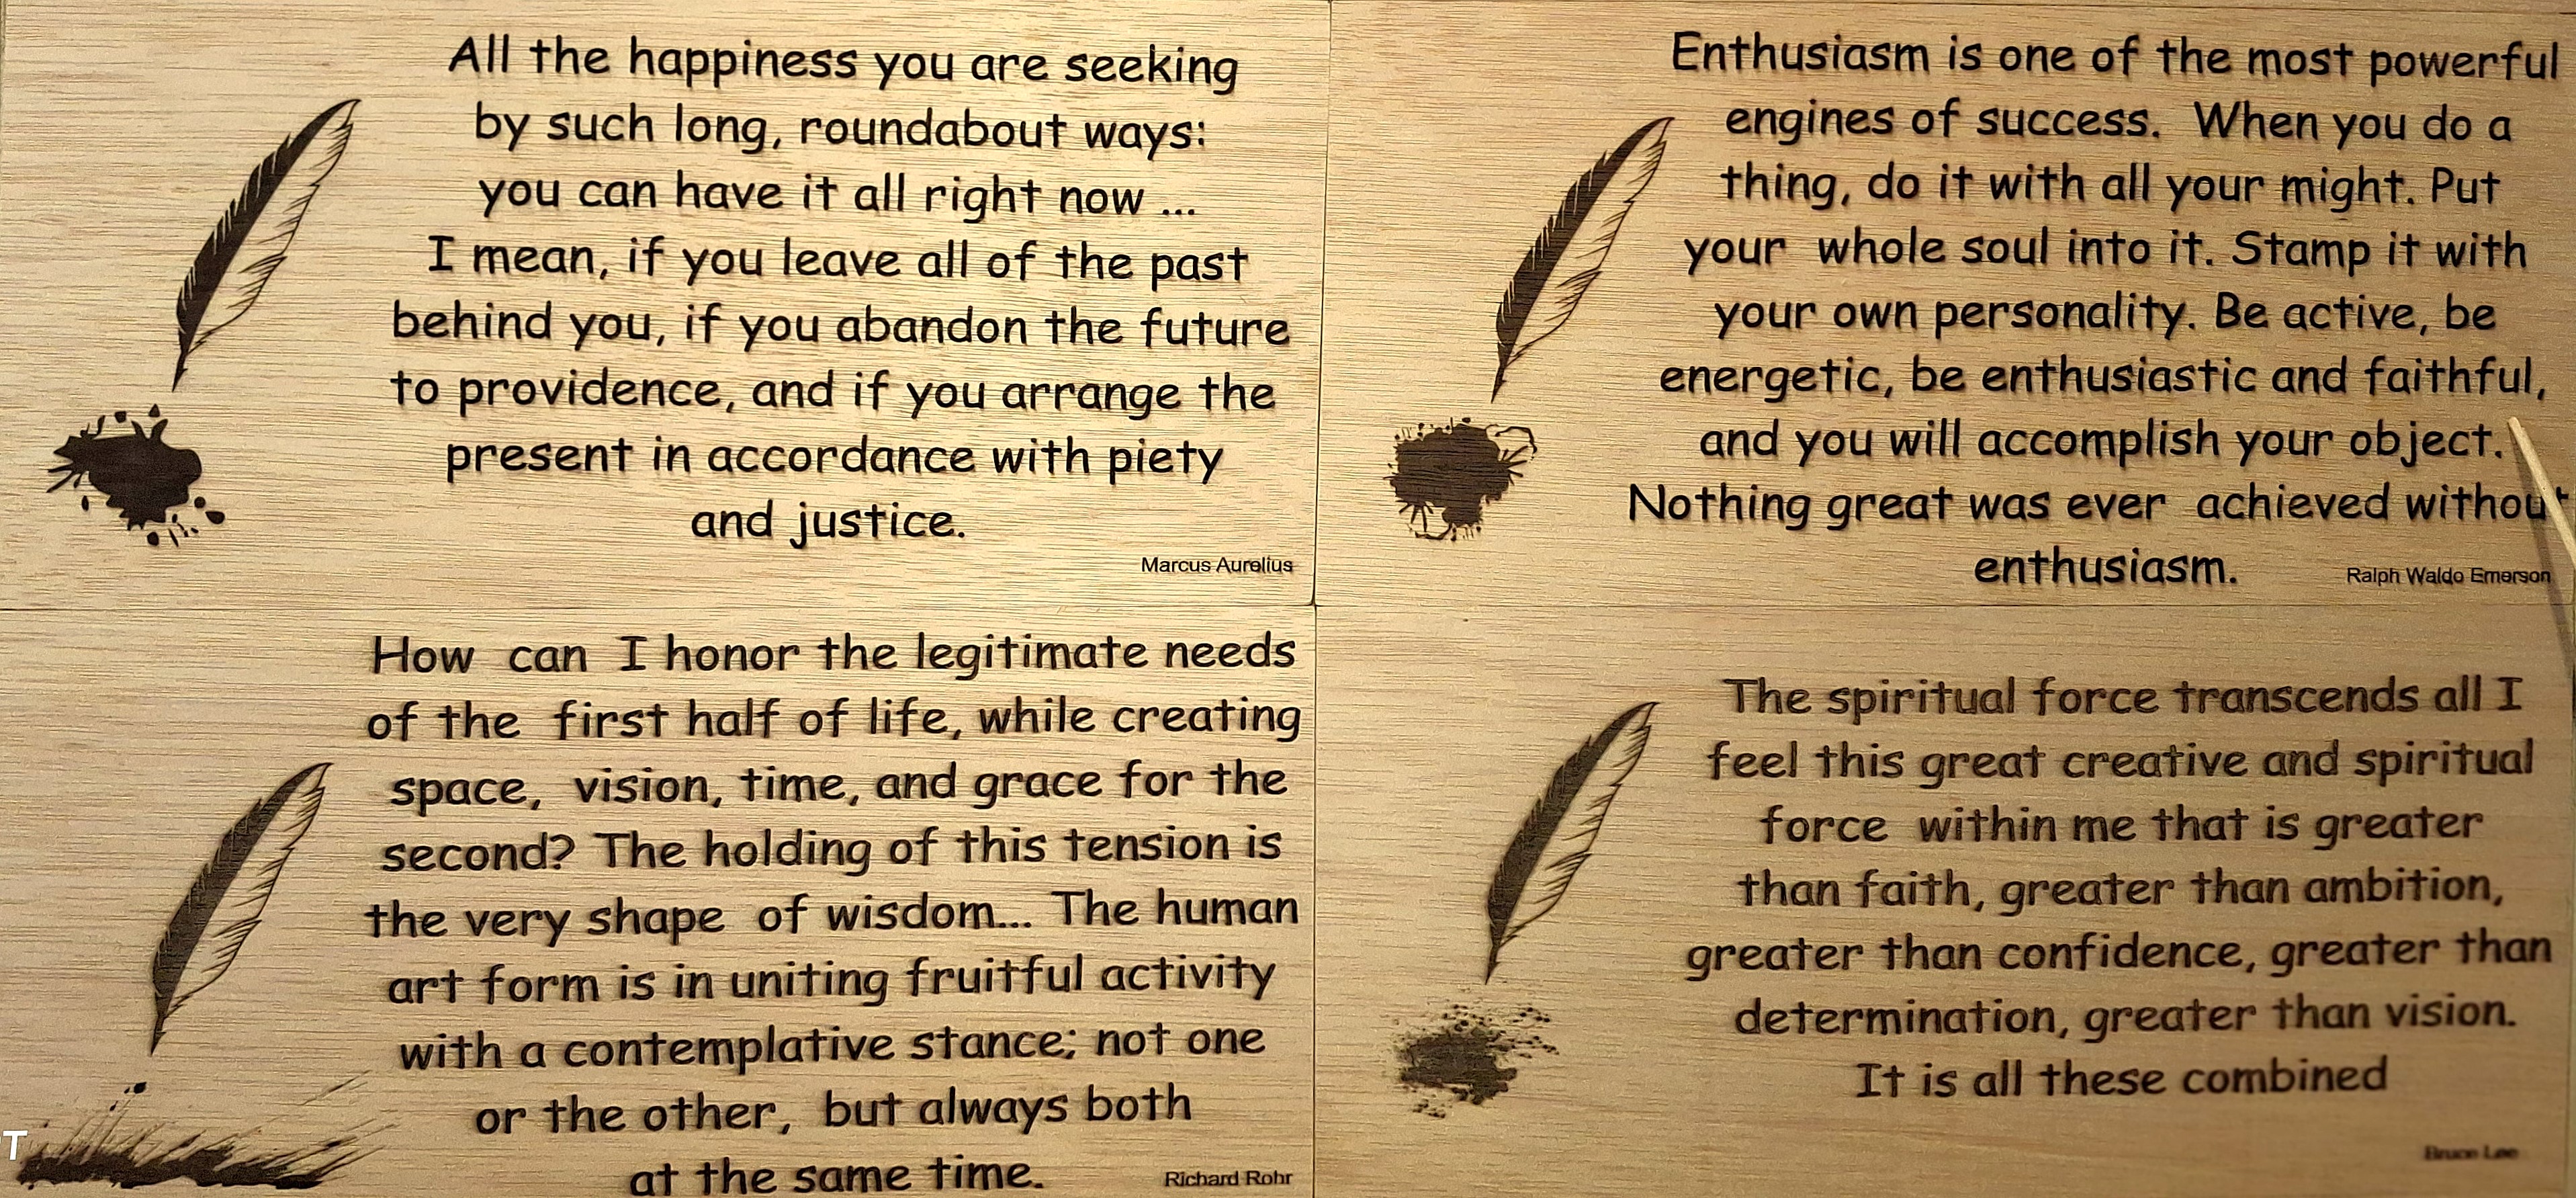 All the happiness you are seeking
by such long, roundabout ways:
you can have it all right now ...
I mean, if you leave all of the past
behind you, if you abandon the future
to providence, and if you arrange the
present in accordance with piety
and justice.
Marcus Aurelius
Enthusiasm is one of the most powerful
engines of success. When you do a
thing, do it with all your might. Put
your whole soul into it. Stamp it with
your own personality. Be active, be
energetic, be enthusiastic and faithful,
and you will accomplish your object.
Nothing great was ever achieved without
enthusiasm.
Ralph Waldo Emerson
How can I honor the legitimate needs
of the first half of life, while creating
space, vision, time, and grace for the
second? The holding of this tension is
the very shape of wisdom... The human
art form is in uniting fruitful activity
with a contemplative stance; not one
or the other, but always both
at the same time.
Richard Rohr
T
The spiritual force transcends all I
feel this great creative and spiritual
force within me that is greater
than faith, greater than ambition,
greater than confidence, greater than
determination, greater than vision.
It is all these combined
Bruce Lee